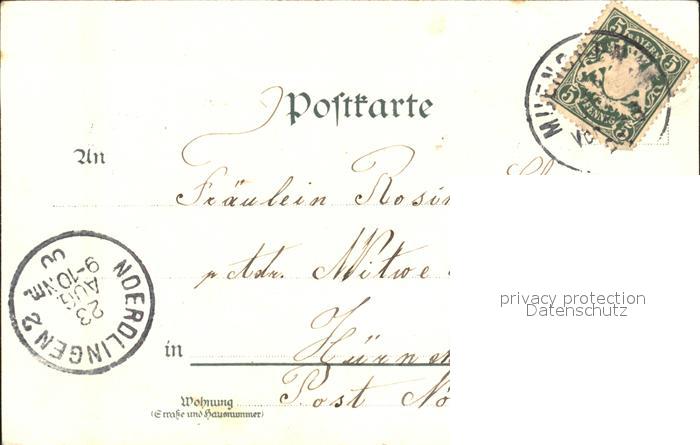 Postkarte
5 BAYERN 5
5 PFENNIG
An
Fräulein Rosin
Witwe
NOERDLINGEN 2
23 AUG
9-10 NM
00
in Hürn
Wohnung
(Straße und Hausnummer)
Post Nö
privacy protection
Datenschutz